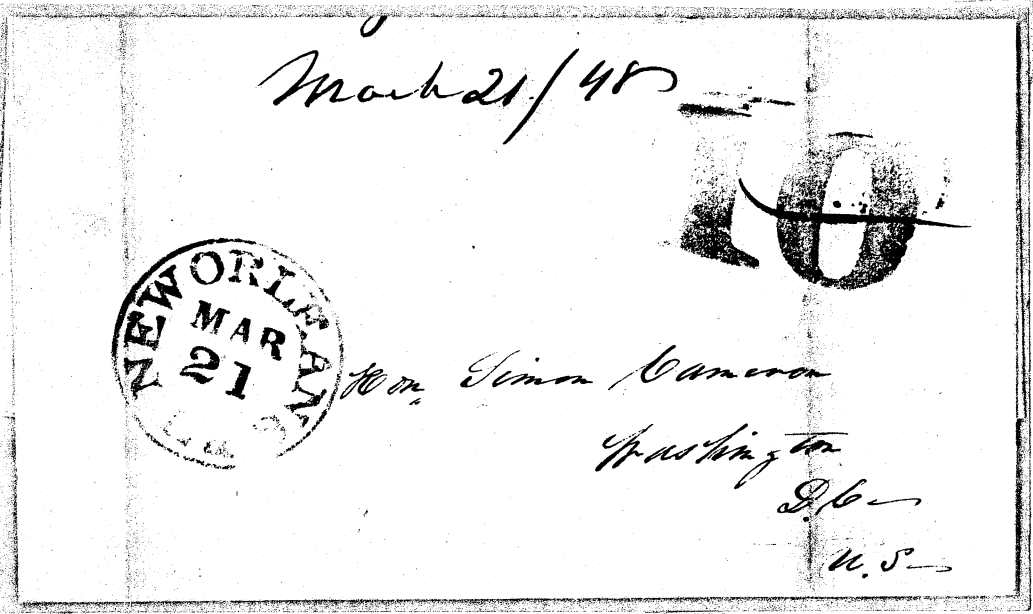 March 21/48
10
NEW ORLEANS
MAR
21
La
Hon. Simon Cameron
Washington
D.C.
U.S.